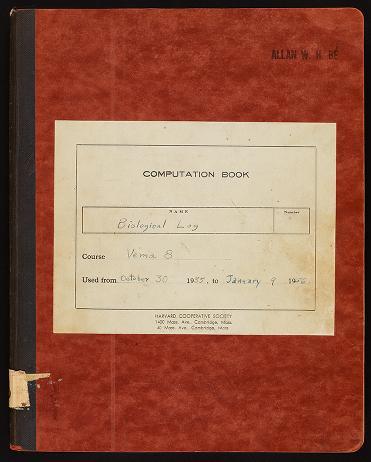 ALLAN W. H. BÉ
COMPUTATION BOOK
NAME Number
Biological Log
Course Vema 8
Used from October 30 1955, to January 9 1956
HARVARD COOPERATIVE SOCIETY
1400 Mass. Ave., Cambridge, Mass.
40 Mass. Ave., Cambridge, Mass.